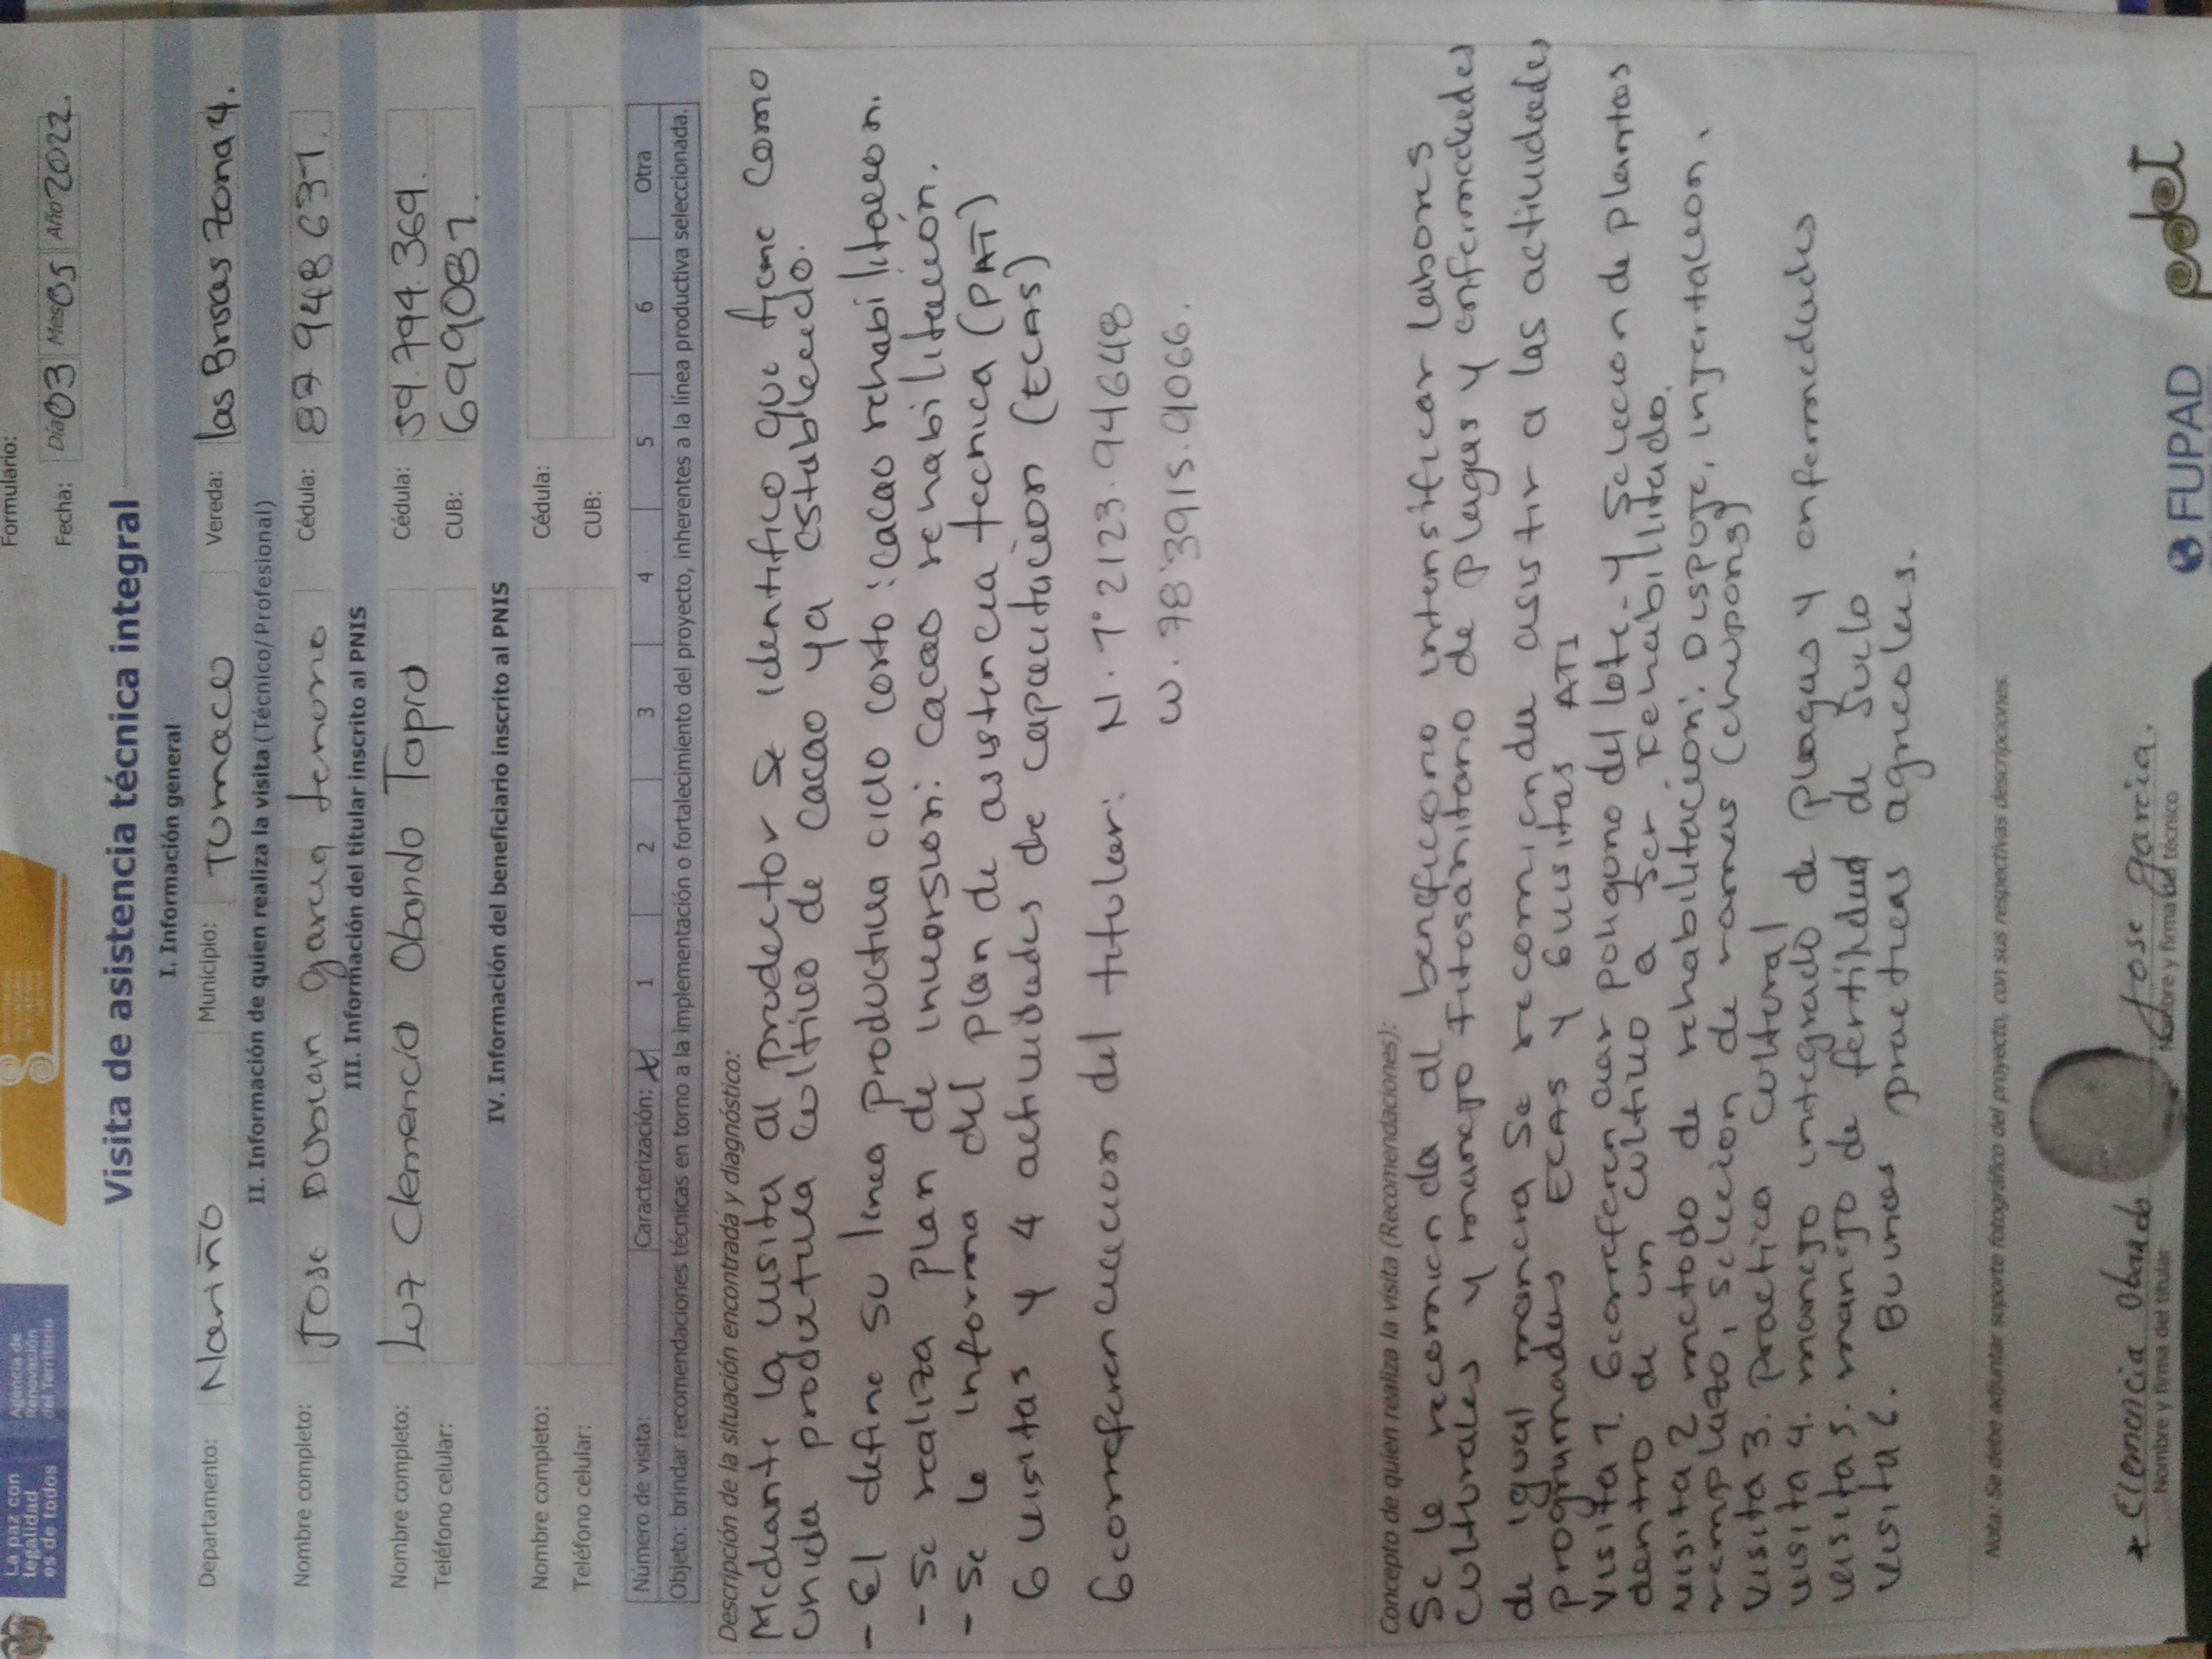 La paz con
legalidad
es de todos
Agencia de
Renovación
del Territorio
Formulario:
Fecha: Día 03 Mes 05 Año 2022.
Visita de asistencia técnica integral
I. Información general
Departamento: Nariño Municipio: Tumaco Vereda: las Brisas zona 4.
II. Información de quien realiza la visita (Técnico/Profesional)
Nombre completo: Jose Dubian garcia tenorio Cédula: 87 948 637.
III. Información del titular inscrito al PNIS
Nombre completo: Luz Clemencia Obando Tapia Cédula: 59.794.369.
Teléfono celular: CUB: 699087.
IV. Información del beneficiario inscrito al PNIS
Nombre completo: Cédula:
Teléfono celular: CUB:
Número de visita: Caracterización: X 1 2 3 4 5 6 Otra
Objeto: brindar recomendaciones técnicas en torno a la implementación o fortalecimiento del proyecto, inherentes a la línea productiva seleccionada.
Descripción de la situación encontrada y diagnóstico:
Mediante la visita al productor se identifico que tiene como
unida productiva cultivo de cacao ya establecido.
- El define su linea productiva ciclo corto: cacao rehabilitacion.
- Se realiza plan de inversion: cacao rehabilitación.
- Se le informa del plan de asistencia tecnica (PAT)
6 visitas y 4 actividades de capacitacion (ECAS)
Georreferenciacion del titular: N. 1° 2123.94648
W. 78°3915.9066.
Concepto de quien realiza la visita (Recomendaciones):
Se le recomienda al beneficiario intensificar labores
culturales y manejo fitosanitario de plagas y enfermedades
de igual manera se recomienda asistir a las actividades
programadas ECAS y 6 visitas ATI
Visita 1. Georreferenciar poligono del lote - y Seleccion de plantas
dentro de un cultivo a ser rehabilitado.
visita 2 metodo de rehabilitacion: Despuje, injertacion,
remplazo, seleccion de ramas (chupons)
visita 3. Practica cultural
visita 4. manejo integrado de plagas y enfermedades
visita 5. manejo de fertilidad de suelo
visita 6. Buenas practicas agricolas.
Nota: Se debe adjuntar soporte fotográfico del proyecto, con sus respectivas descripciones.
* Clemencia Obando
Nombre y firma del titular
Jose garcia.
Nombre y firma del técnico
FUPAD
pdet